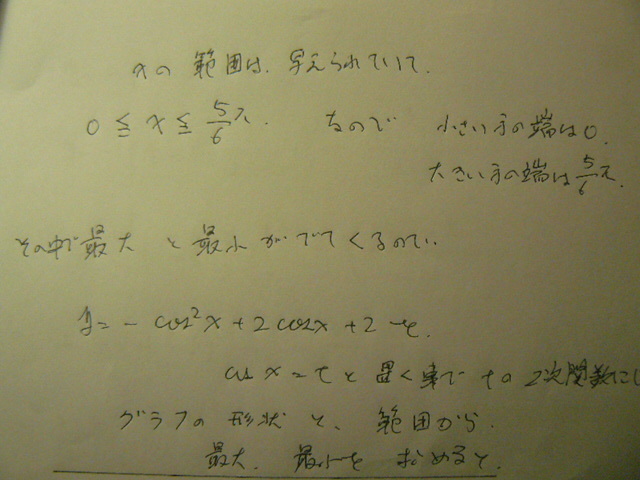 xの 範囲は、与えられていて、
0 ≦ x ≦ 5/6 π. なので 小さい方の端は0.
大きい方の端は 5/6 π.
その中で最大 と 最小 がでてくるので、
y = - cos²x + 2 cosx + 2 を.
cos x = t と置く事で tの 2次関数にし
グラフの 形状 と、 範囲から.
最大、 最小を 求めると.